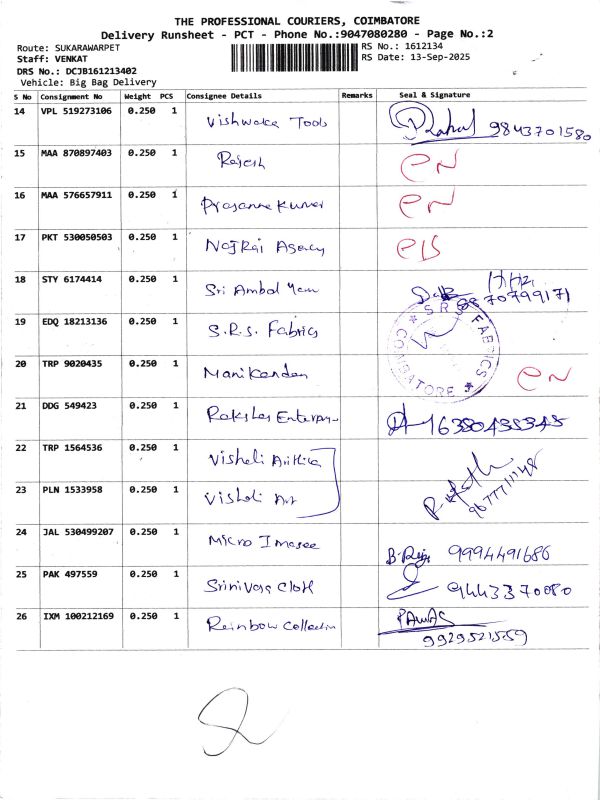 THE PROFESSIONAL COURIERS, COIMBATORE
Delivery Runsheet - PCT - Phone No.:9047080280 - Page No.:2
Route: SUKARAWARPET
Staff: VENKAT
DRS No.: DCJB161213402
Vehicle: Big Bag Delivery
RS No.: 1612134
RS Date: 13-Sep-2025
S No Consignment No Weight PCS Consignee Details Remarks Seal & Signature
14 VPL 519273106 0.250 1 Vishwaka Tools Rahul 9843701580
15 MAA 870897403 0.250 1 Rajesh
16 MAA 576657911 0.250 1 Prasanna Kumar
17 PKT 530050503 0.250 1 Nagraj Agency
18 STY 6174414 0.250 1 Sri Ambal Yarn
19 EDQ 18213136 0.250 1 S.R.S. Fabrics
S R S FABRICS
COIMBATORE
20 TRP 9020435 0.250 1 Manikandan
21 DDG 549423 0.250 1
22 TRP 1564536 0.250 1
23 PLN 1533958 0.250 1 Vishali Art
24 JAL 530499207 0.250 1 Micro Imagee 9994491686
25 PAK 497559 0.250 1 Srinivasa Cloth 9443370080
26 IXM 100212169 0.250 1 Rainbow Collection PAWAS
9929521559